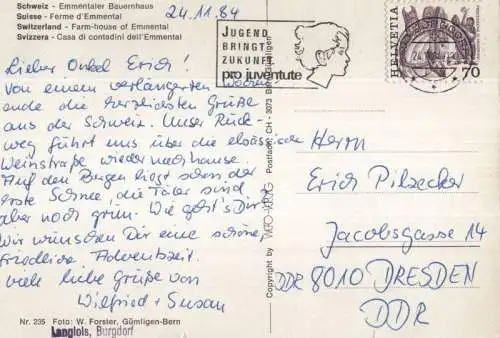 Schweiz - Emmentaler Bauernhaus
Suisse - Ferme d'Emmental
Switzerland - Farm-house of Emmental
Svizzera - Casa di contadini dell'Emmental
24.11.84
JUGEND
BRINGT
ZUKUNFT
pro juventute
HELVETIA
70
Lieber Onkel Erich!
Von einem verlängerten Wochen-
ende die herzlichsten Grüße
aus der Schweiz. Unser Rück-
weg führt uns über die elsässische
Weinstraße wieder nachhause.
Auf den Bergen liegt schon der
erste Schnee, die Täler sind
aber noch grün. Wie geht's Dir?
Wir wünschen Dir eine schöne,
friedliche Adventszeit.
Viele liebe Grüße von
Wilfried + Susan
Copyright by
Postfach: CH - 3073 Gümligen
Herrn
Erich Pilzecker
Jacobsgasse 14
DDR 8010 DRESDEN
DDR
Nr. 235 Foto: W. Forster, Gümligen-Bern
Langlois, Burgdorf